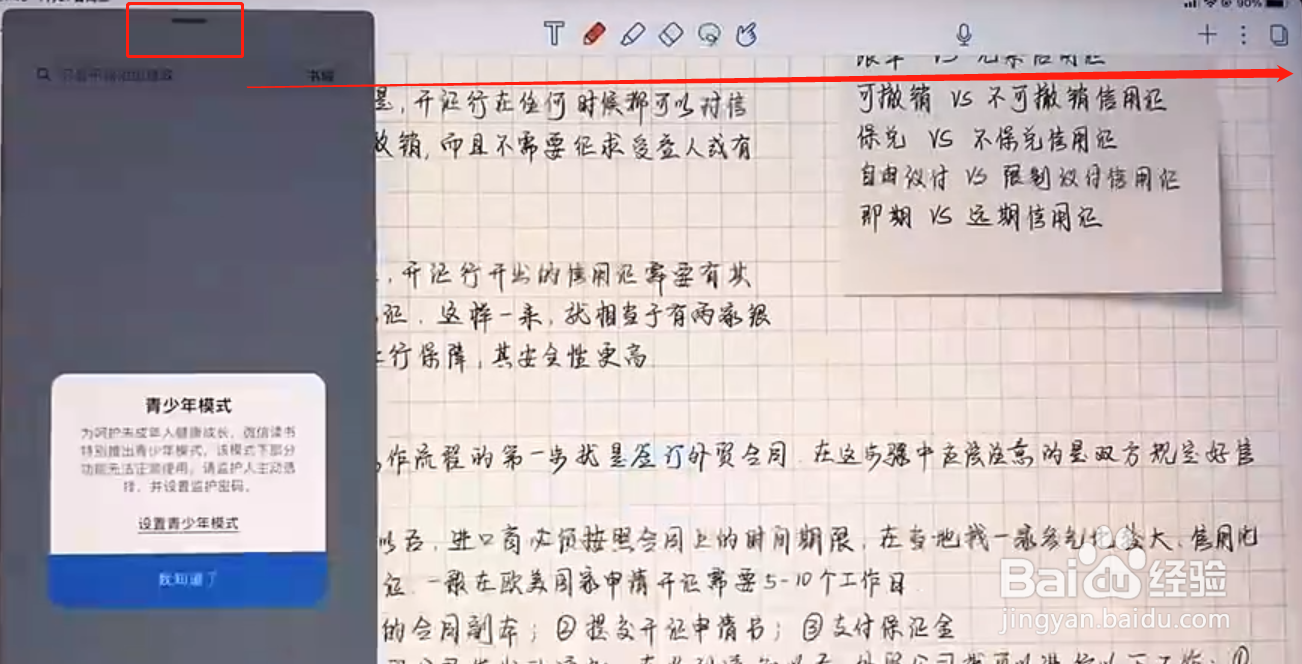 90%
T
书城
限单 VS 跟单信用证
是,开证行在任何时候都可以对信
可撤销 VS 不可撤销信用证
撤销,而且不需要征求受益人或有
保兑 VS 不保兑信用证
自由议付 VS 限制议付信用证
即期 VS 远期信用证
,开证行开出的信用证需要有其
证.这样一来,就相当于有两家银
行保障,其安全性更高
青少年模式
为呵护未成年人健康成长,微信读书
特别推出青少年模式,该模式下部分
功能无法正常使用,请监护人主动选
择,并设置监护密码。
设置青少年模式
我知道了
作流程的第一步就是签订外贸合同.在这步骤中应该注意的是双方规定好信
以后,进口商必须按照合同上的时间期限,在当地找一家大,信用
证.一般在欧美国家申请开证需要5-10个工作日
的合同副本;②提交开证申请书;③支付保证金
Baidu经验
jingyan.baidu.com